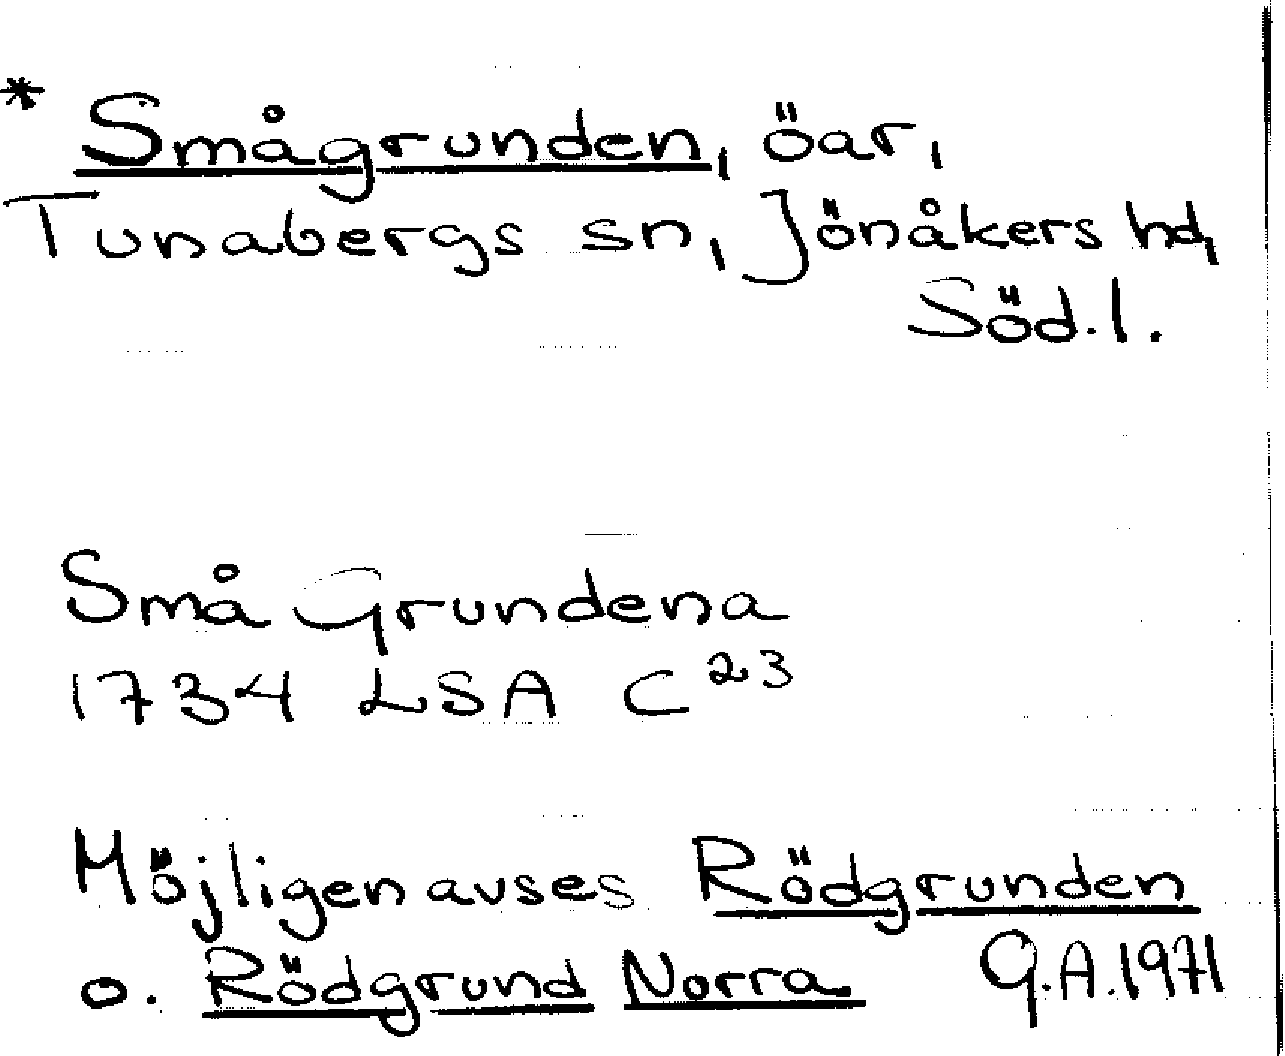 * Smågrunden, öar,
Tunabergs sn, Jönåkers hd,
Söd.l.
Små Grundena
1734 LSA C 23
Möjligen avses Rödgrunden
o. Rödgrund Norra G.A.1971